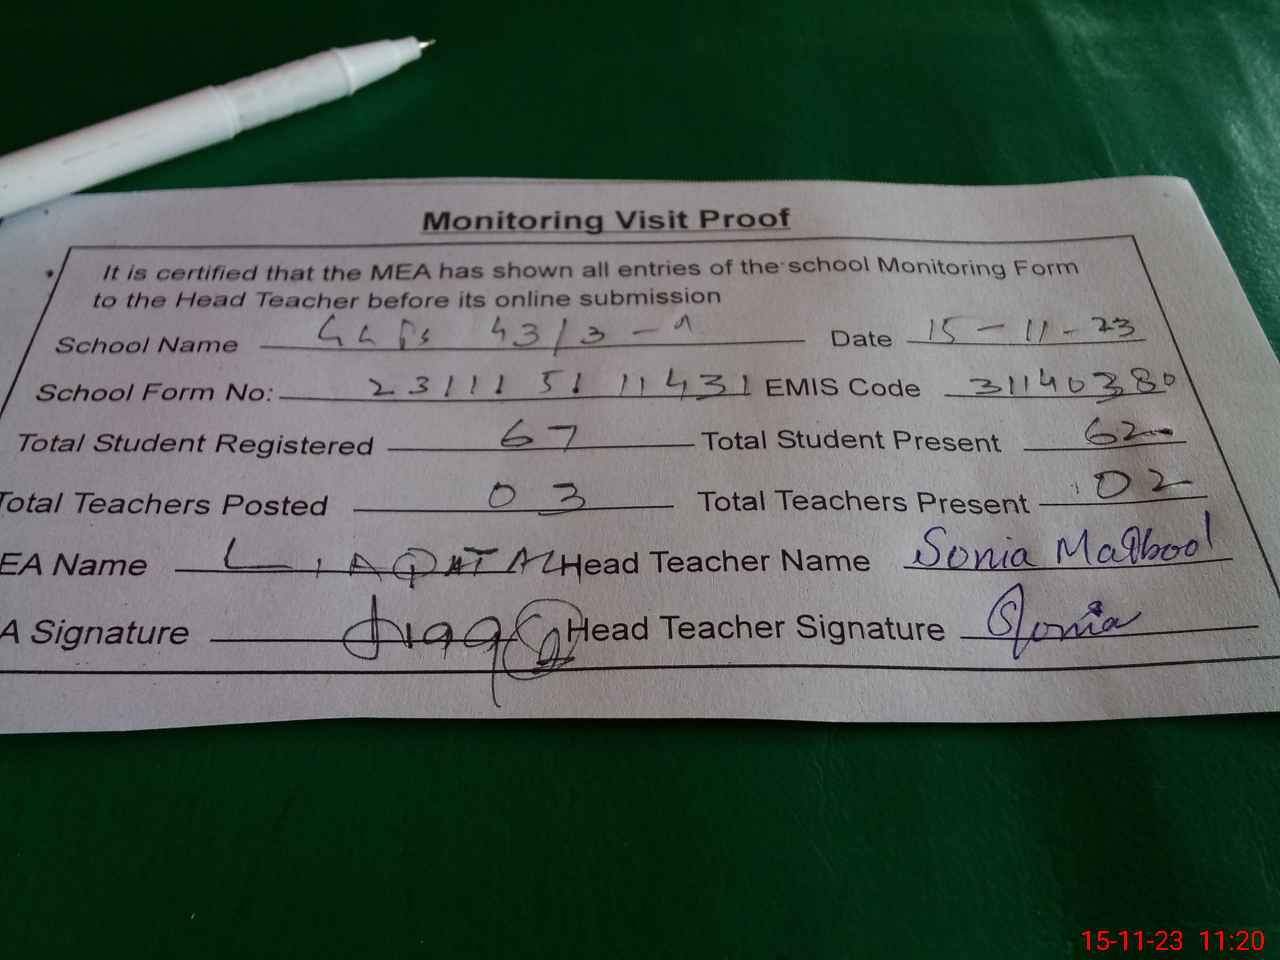 Monitoring Visit Proof
It is certified that the MEA has shown all entries of the school Monitoring Form
to the Head Teacher before its online submission
School Name 43/3- Date 15-11-23
School Form No: 231115111431 EMIS Code 31140380
Total Student Registered 67 Total Student Present 62
Total Teachers Posted 03 Total Teachers Present 02
EA Name LIAQAT ALI Head Teacher Name Sonia Maqbool
A Signature Head Teacher Signature Sonia
15-11-23 11:20